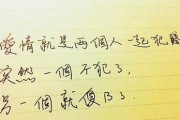 愛情就是两個人一起犯賤
突然一個不犯了,
另一個就傻B了.